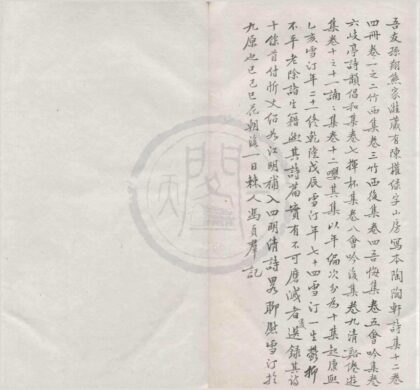 吾友孫翔熊家藏有陳權保孚山房寫本陶陶軒詩集十二卷
四冊卷一之二竹西集卷三竹西後集卷四吾悔集卷五會吟集卷
六歧亭詩類倡和集卷七揮杯集卷八會吟後集卷九清谿倦遊
集卷十之十一論集卷十二嚶其集以年編次分為十集起康熙
乙亥雪汀年二十一終乾隆戊辰雪汀年七十四雪汀一生鬱抑
不平老除諸生籍然其詩篇實有不可磨滅者爰選錄其詩
十餘首付忻文紹為江明補入四明清詩略聊慰雪汀於
九原也己巳花朝後一日棘人馮貞羣記